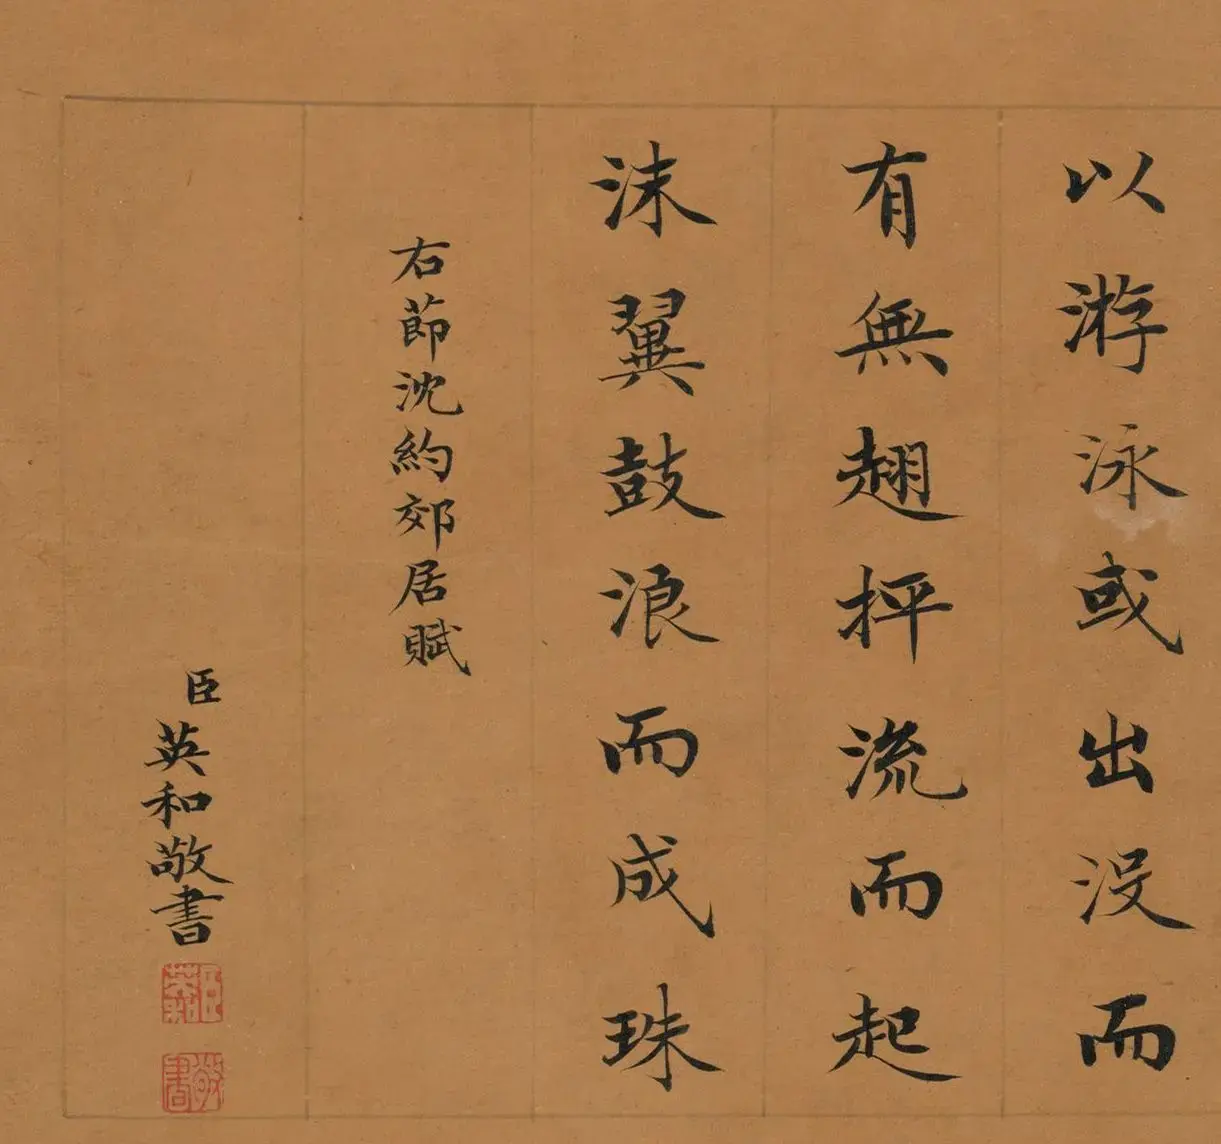 以游泳或出没而
有無趐抨流而起
沫翼鼓浪而成珠
右節沈約郊居賦
臣英和敬書
臣英和
敬書